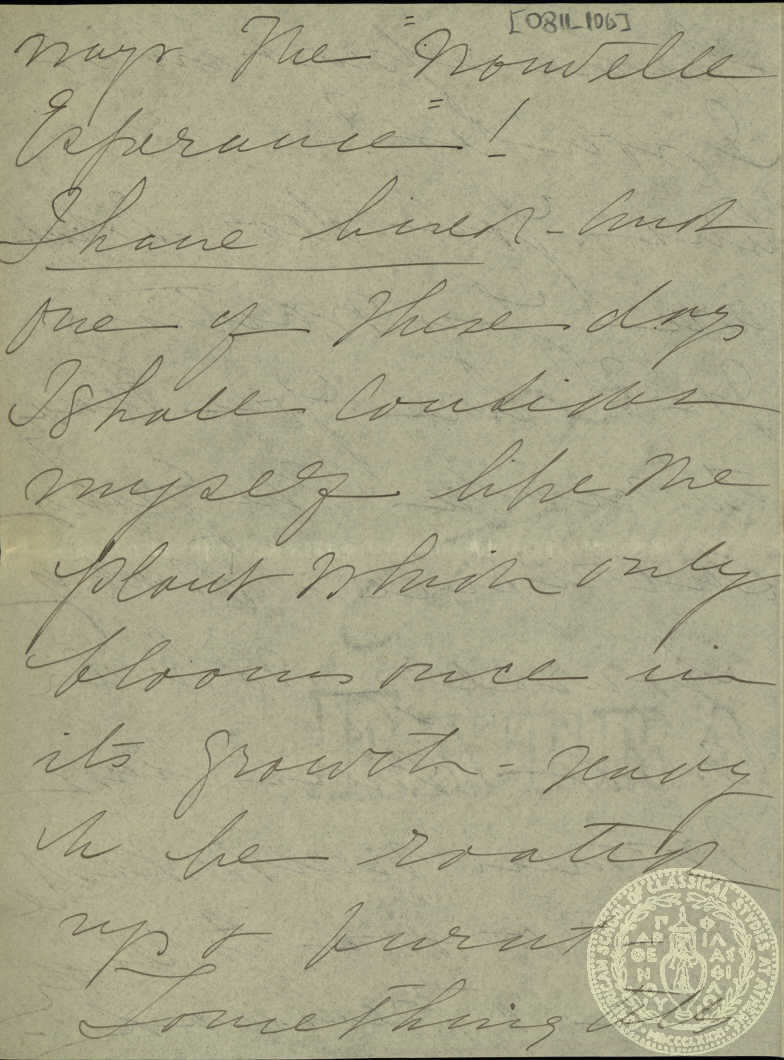 [0811_106]
says the "Nouvelle
Esperance"!
I have lived - and
one of these days
I shall consider
myself like the
plant which only
blooms once in
its growth - ready
to be rooted
up & burnt -
Something
AMERICAN SCHOOL OF CLASSICAL STUDIES AT ATHENS
ΠΑΡΘΕΝΟΥ ΦΙΛΑΣ ΦΙΛΟΣ
MDCCCLXXXI